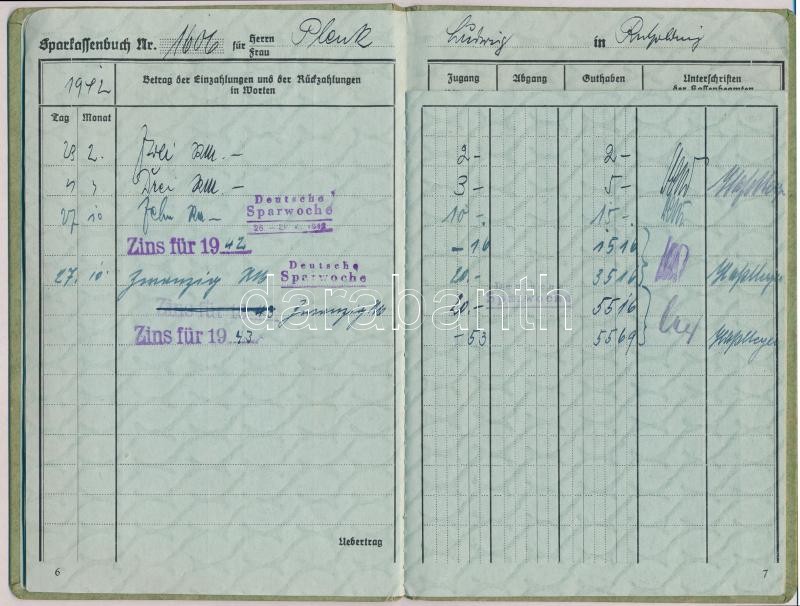 Sparkassenbuch Nr. 1606 für Herrn Frau Plenk Ludwig in Ruhpolding
1942 Betrag der Einzahlungen und der Rückzahlungen in Worten Zugang Abgang Guthaben Unterschriften der Kassenbeamten
Tag Monat
23 2. Zwei RM. – 2 – 2 –
Drei RM. – 3 – 5 –
27 10 Zehn RM – 10 – 15 –
Deutsche Sparwoche
Zins für 1942 – 16 15 16
27. 10. Zwanzig RM 20 – 35 16
Deutsche Sparwoche
Zins für 19 43 Zwanzig RM 20 – 55 16
Sparwoche
Zins für 1943 – 53 55 69
darabanth
Uebertrag
6 7